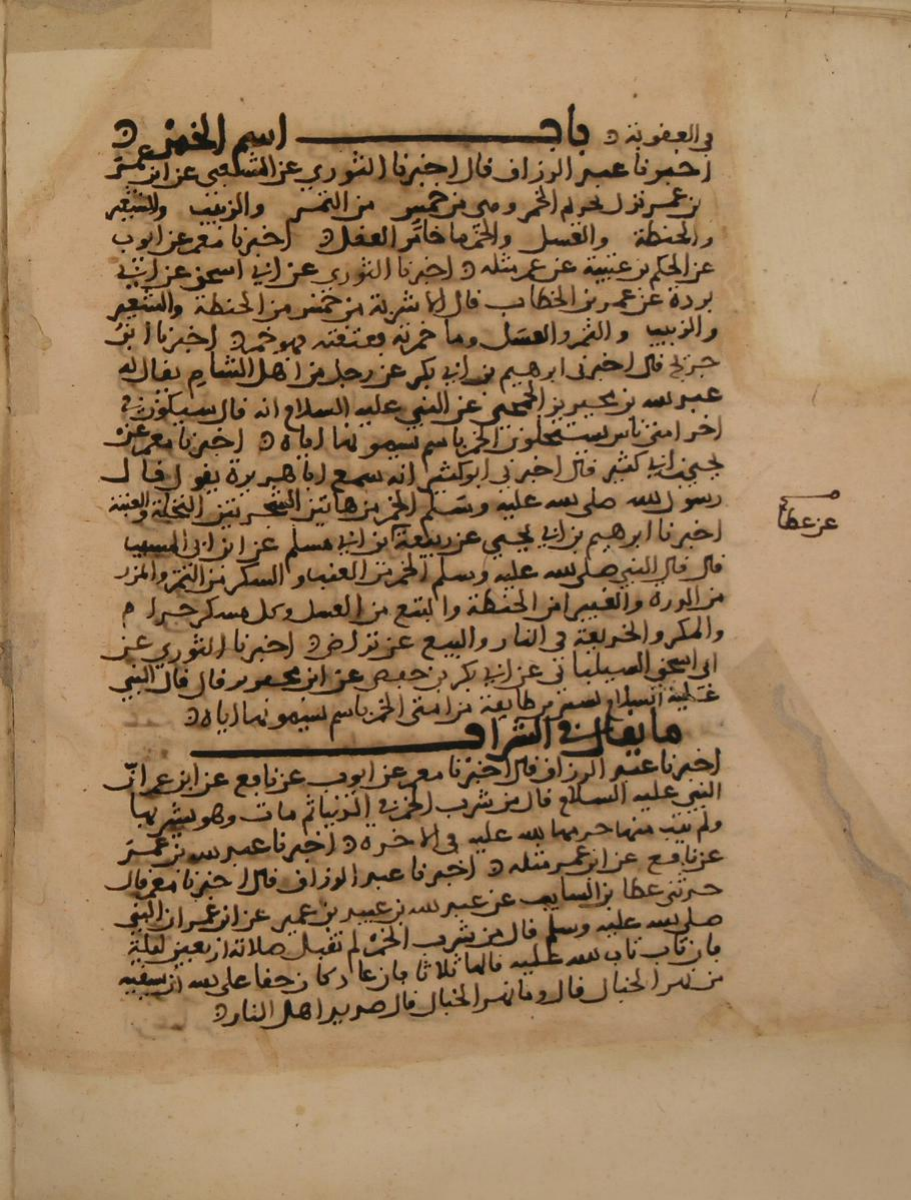 في العقوبة ه باب اسم الخمر ه
اخبرنا عبد الرزاق قال اخبرنا الثوري عن الشعبي عن ابن عمر
بن عمر نزل تحريم الخمر وهي من خمس من التمر والزبيب والشعير
والحنطة والعسل والخمر ما خامر العقل ه اخبرنا معمر عن ايوب
عن الحكم بن عتيبة عن عمر مثله ه اخبرنا الثوري عن ابي اسحق عن ابي
بردة عن عمر بن الخطاب قال الاشربة من خمس من الحنطة والشعير
والزبيب والتمر والعسل وما خمرته فعتقته فهو خمر ه اخبرنا ابن
جريج قال اخبرني ابرهيم بن ابي بكر عن رجل من اهل الشام يقال له
عبد الله بن محيريز الجمحي عن النبي عليه السلام انه قال سيكون في
اخر امتي ناس يستحلون الخمر باسم يسمونها اياه ه اخبرنا معمر عن
يحيى بن ابي كثير قال اخبرني ابو كثير انه سمع ابا هريرة يقول قال
رسول الله صلى الله عليه وسلم الخمر من هاتين الشجرتين النخلة والعنبة
اخبرنا ابرهيم بن ابي يحيى عن ربيعة بن ابي مسلم عن ابن ابي المسيب
عن عطا
قال قال النبي صلى الله عليه وسلم الخمر من العنب والسكر من التمر والمزر
من الذرة والغبيرا من الحنطة والبتع من العسل وكل مسكر حرام
والمكر والخديعة في النار والبيع عن تراض ه اخبرنا الثوري عن
ابي اسحق الشيباني عن ابي بكر بن حفص عن ابن محيريز قال قال النبي
عليه السلام ليشربن طايفة من امتي الخمر باسم يسمونها اياه ه
ما يقال في الشراب
اخبرنا عبد الرزاق قال اخبرنا معمر عن ايوب عن نافع عن ابن عمر ان
النبي عليه السلام قال من شرب الخمر في الدنيا ثم مات وهو يشربها
ولم يتب منها حرمها الله عليه في الاخرة ه اخبرنا عبد الله بن عمر
عن نافع عن ابن عمر مثله ه اخبرنا عبد الرزاق قال اخبرنا معمر قال
حدثني عطا بن السايب عن عبد الله بن عبيد بن عمير عن ابن عمر ان النبي
صلى الله عليه وسلم قال من شرب الخمر لم تقبل صلاته اربعين ليلة
فان تاب تاب الله عليه قالها ثلاثا فان عاد كان حقا على الله ان يسقيه
من نهر الخبال قال وما نهر الخبال قال صديد اهل النار ه